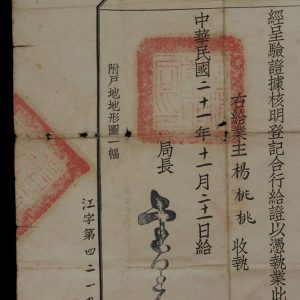 經呈驗證據核明登記合行給證以憑執業此
右給業主楊桃桃收執
中華民國二十一年十一月二十一日給
局長
附戶地地形圖一幅
江字第四二一